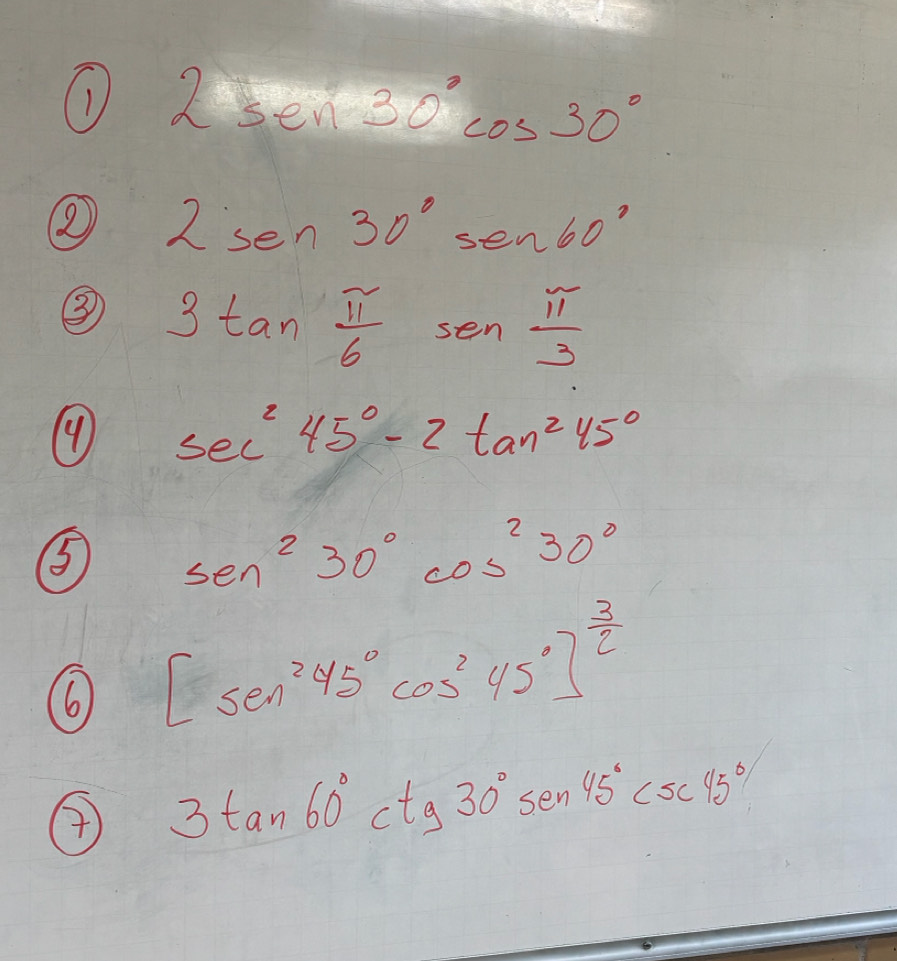 ① 2 sen 30° cos 30°
② 2 sen 30° sen 60°
③ 3 tan π/6 sen π/3
④ sec² 45° - 2 tan² 45°
⑤ sen² 30° cos² 30°
⑥ [sen² 45° cos² 45°]^(3/2)
⑦ 3 tan 60° ctg 30° sen 45° csc 45°